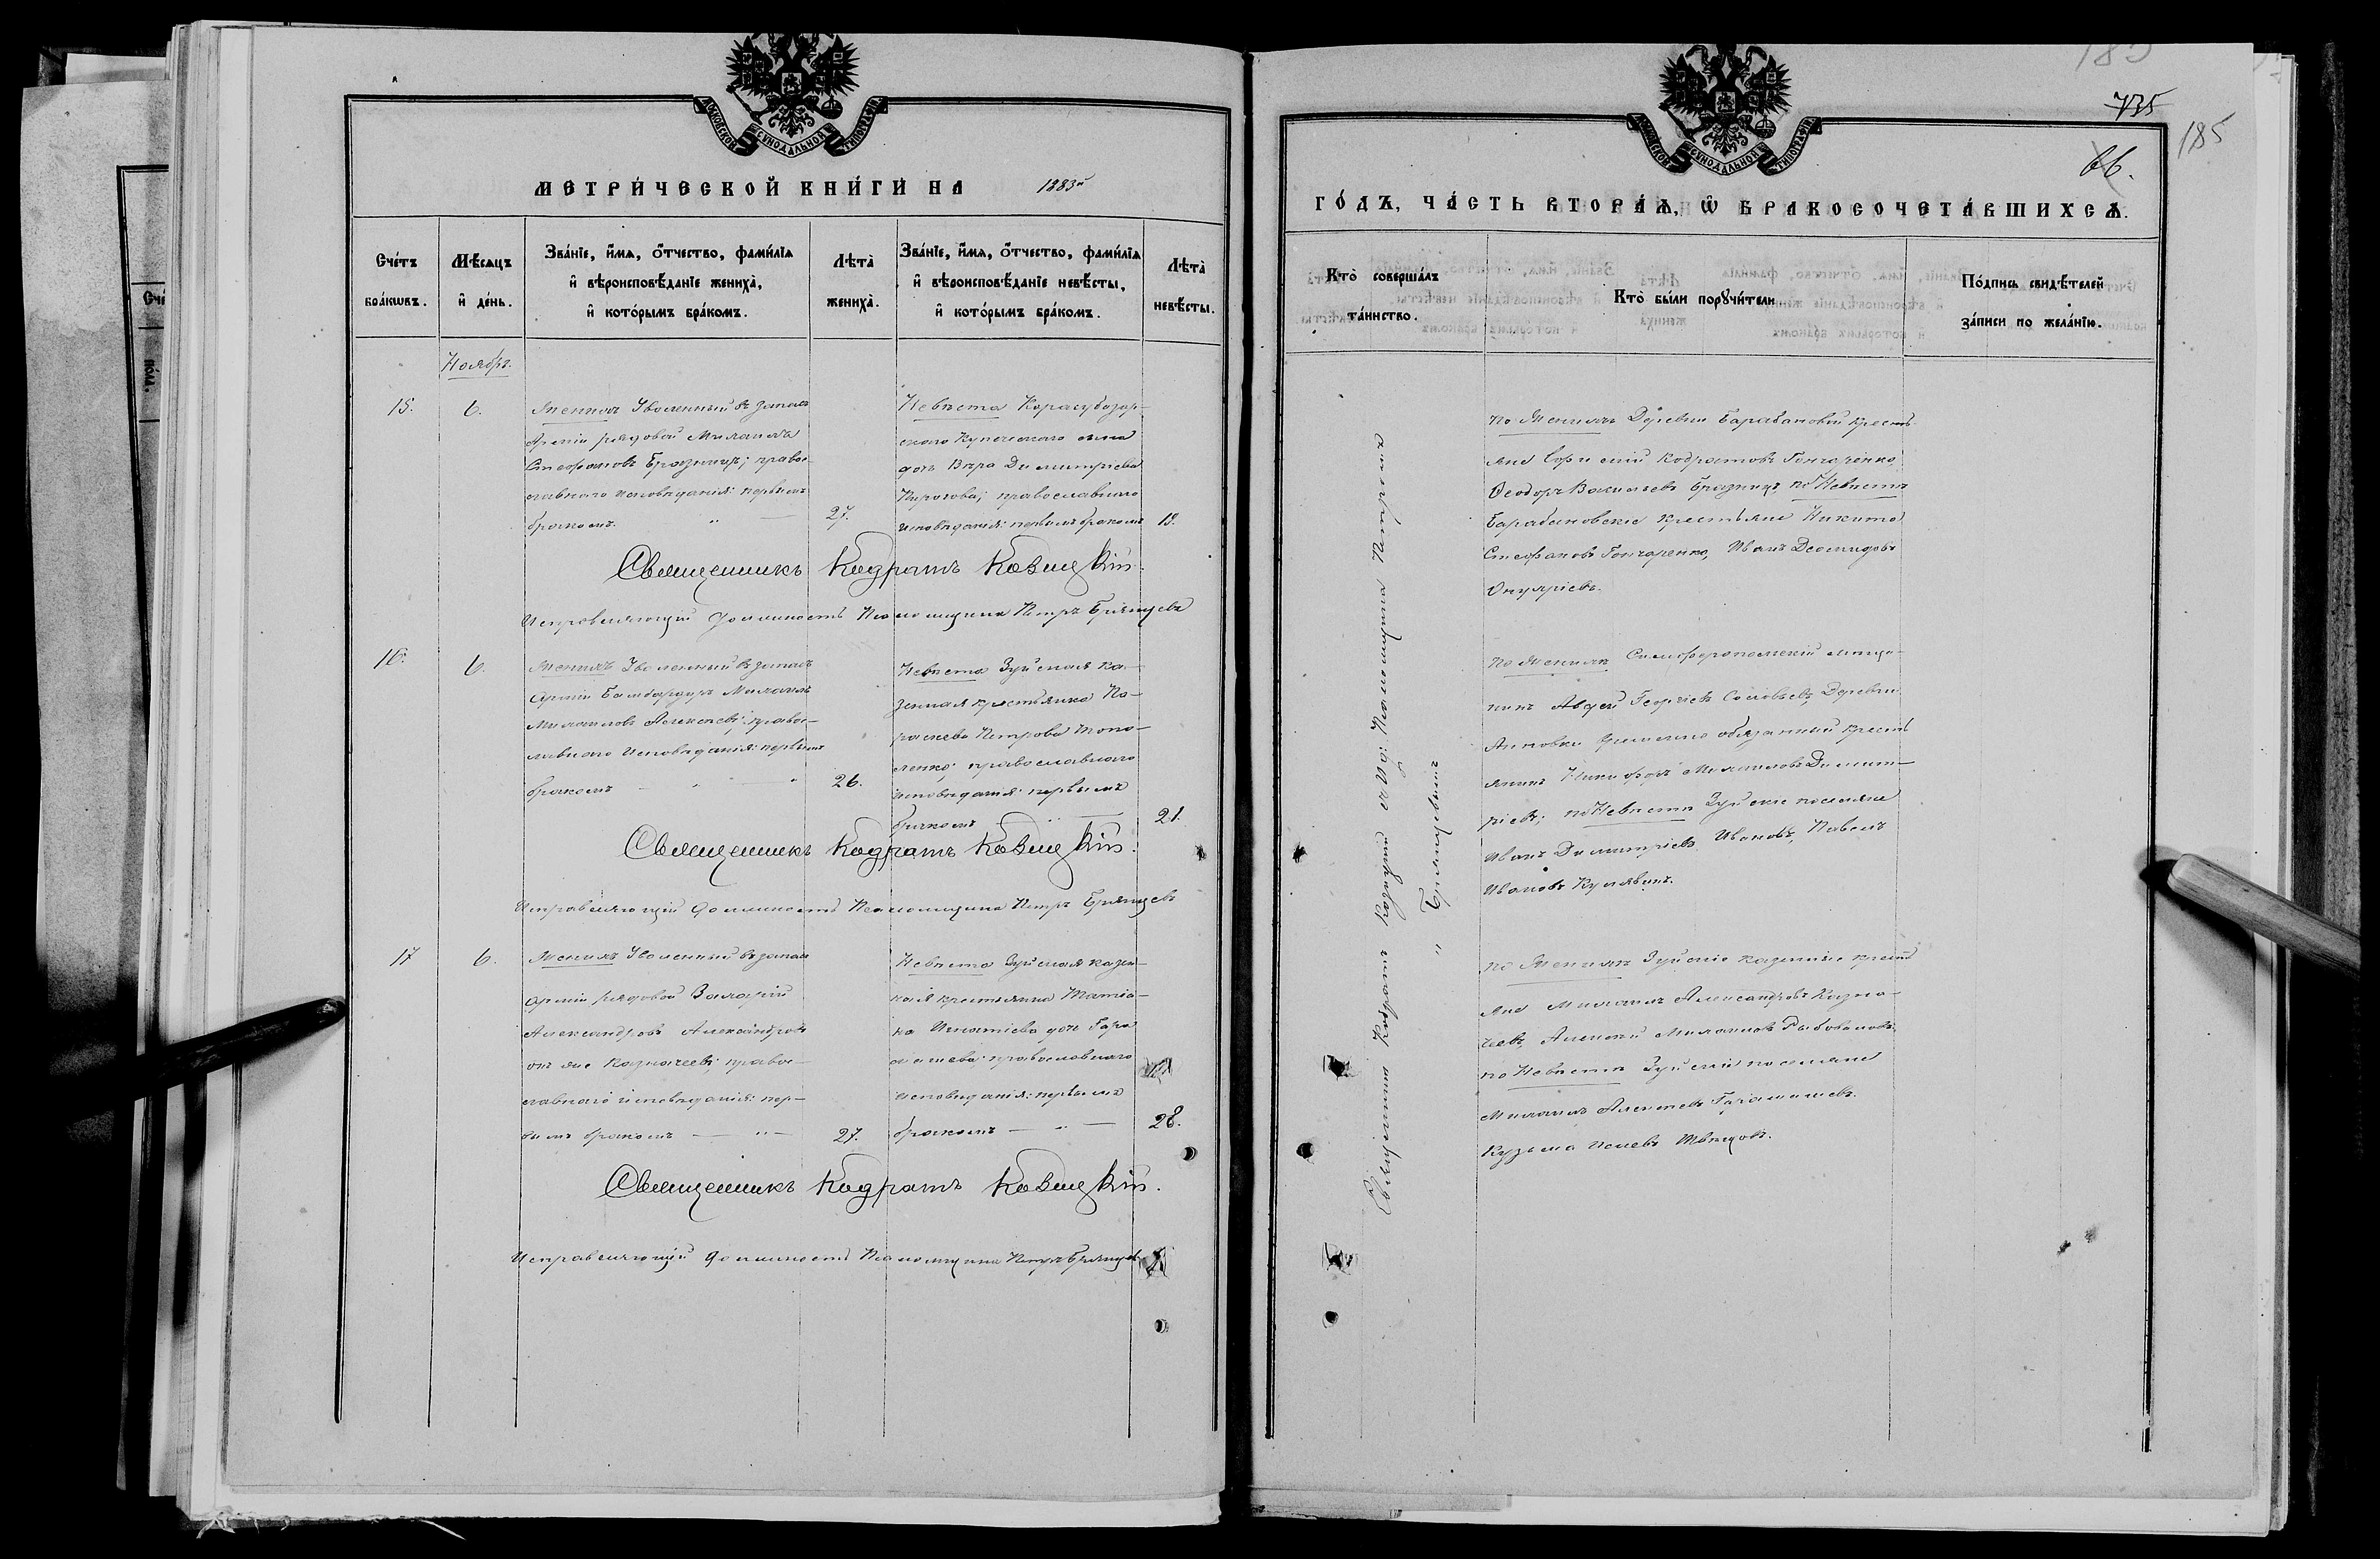 МОСКОВСКОЙ СѴНОДАЛЬНОЙ ТИПОГРАФІИ
МЕТРИ́ЧЕСКОЙ КНИ́ГИ НА 1883й
Сче́тъ бра́кѡвъ.
Мѣ́сяцъ и҆ де́нь.
Зва́нїе, и҆́мѧ, ѻ҆́тчество, фами́лїѧ
и҆ вѣроисповѣ́данїе женихà,
и҆ кото́рымъ бра́комъ.
Лѣтà женихà.
Зва́нїе, и҆́мѧ, ѻ҆́тчество, фами́лїѧ
и҆ вѣроисповѣ́данїе невѣ́сты,
и҆ кото́рымъ бра́комъ.
Лѣтà невѣ́сты.
Ноябрь.
15.
6.
Женихъ Уволенный въ запасъ
Арміи рядовой Михаилъ
Стефановъ Бразницъ; правос-
лавнаго исповѣданія: первымъ
бракомъ.
27.
Невѣста Карасубазар-
скаго Купеческаго сына
дочь Вѣра Димитріева
Пирогова; православнаго
исповѣданія: первымъ бракомъ
Священникъ Кодратъ
Исправляющій должность Псаломщика Петръ Брянцевъ
16.
6.
Женихъ Уволенный въ запасъ
Арміи Бомбардиръ Михаилъ
Михаиловъ Алексеевъ; правос-
лавнаго исповѣданія: первымъ
бракомъ
26.
Невѣста Зуйская ка-
зенная крестьянка Па-
раскева Петрова Топо-
ленко; православнаго
исповѣданія: первымъ
бракомъ
21.
Священникъ Кодратъ
Исправляющій должность Псаломщика Петръ Брянцевъ
17
6.
Женихъ Уволенный въ запасъ
арміи рядовой Захарій
Александровъ Александровъ
онъ же Казначеевъ; правос-
лавнаго исповѣданія: пер-
вымъ бракомъ
27.
Невѣста Зуйская казен-
ная крестьянка Татіа-
на Игнатіева дочь
православнаго
исповѣданія: первымъ
бракомъ
28.
Священникъ Кодратъ
Исправляющій должность Псаломщика Петръ Брянцевъ
МОСКОВСКОЙ СѴНОДАЛЬНОЙ ТИПОГРАФІИ
735
185
66.
ГО́ДЪ, ЧА́СТЬ ВТОРА́Я, Ѡ҆ БРАКОСОЧЕТА́ВШИХСЯ.
Кто̀ соверша́лъ та́инство.
Кто̀ бы́ли порꙋчи́тели.
По́дпись свидѣ́телей за́писи по жела́нїю.
Священникъ Кодратъ и И. д. Псаломщика Петромъ
Брянцевымъ
По Женихѣ Деревни Барабановки крестья-
яне Кодратовъ Гончаренко,
Ѳеодоръ Васильевъ Бразницъ, по Невѣстѣ
Барабановскіе крестьяне Никита
Стефановъ Гончаренко, Иванъ Деомидовъ
По Женихѣ Симферопольскій мѣща-
нинъ Авдей Георгіевъ Соловьевъ, Деревни
временно обязанный кресть
янинъ Никифоръ Михаиловъ Димит-
ріевъ; по Невѣстѣ Зуйскіе поселяне
Иванъ Димитріевъ Ивановъ, Павелъ
Ивановъ
по Женихѣ Зуйскіе казенные кресть
яне Михаилъ Александровъ Казна-
чеевъ, Алексей Михаиловъ
по Невѣстѣ Зуйскіе поселяне
Михаилъ Алексеевъ
Кузьма Швецовъ.